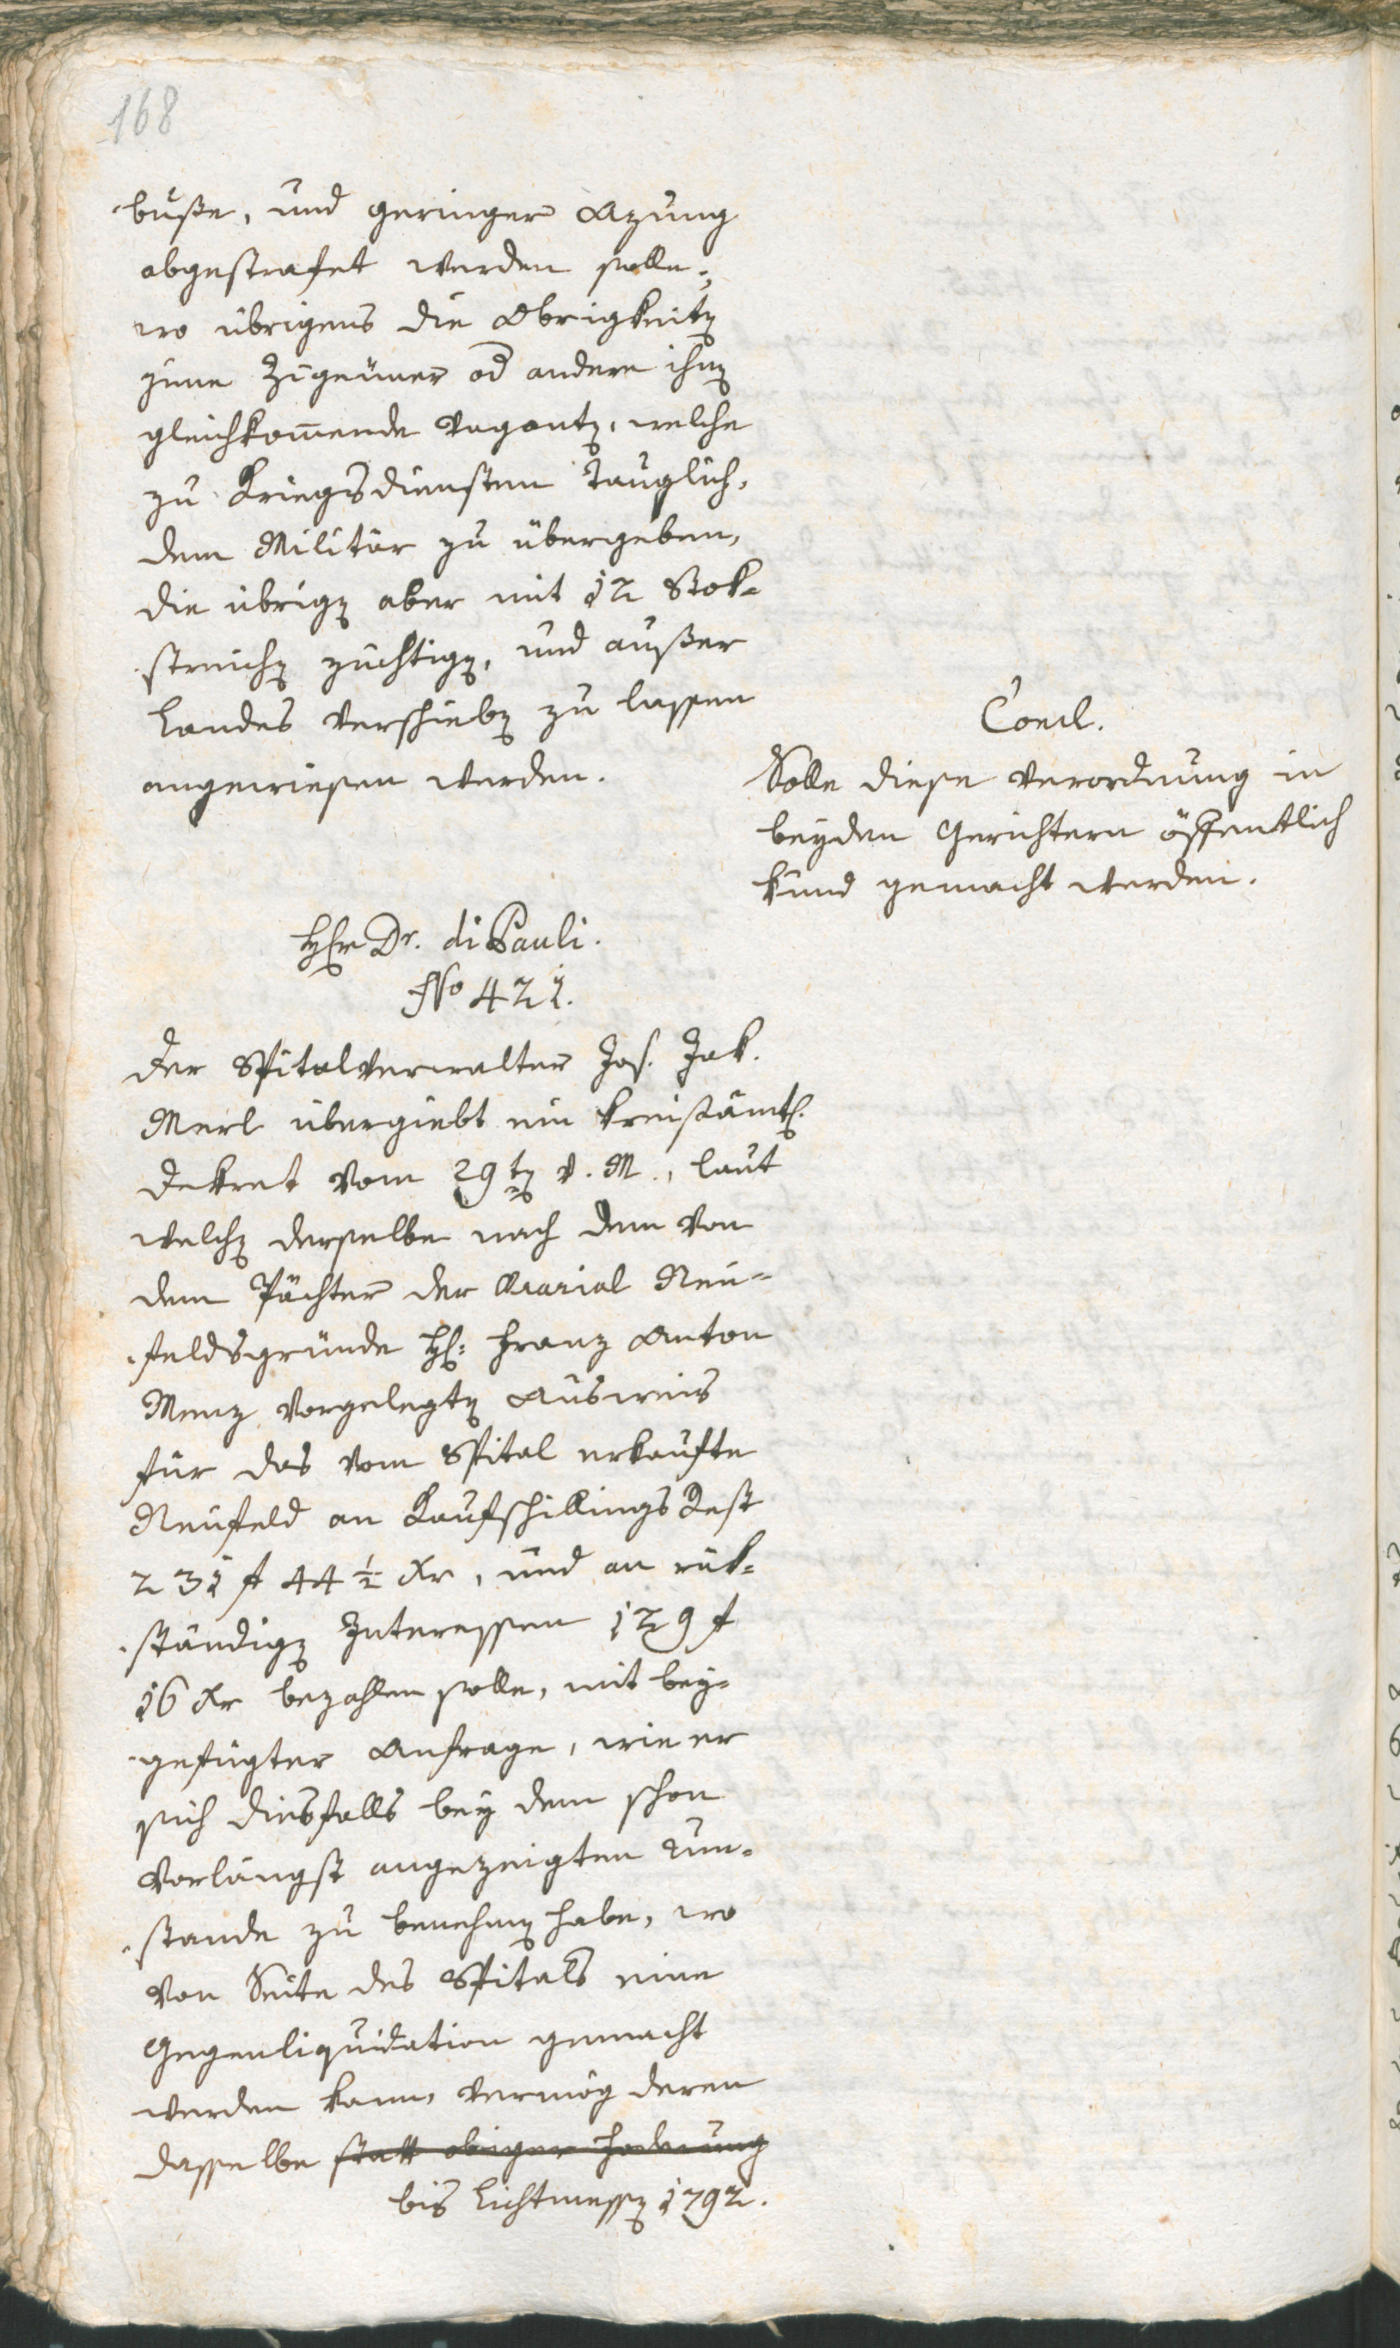 168
buße, und geringer Azung
abgestrafet werden solle;
wo übrigens die Obrigkeiten
jene Zigeuner od andere ihnen
gleichkom̅ende Vaganten, welche
zu Kriegsdiensten tauglich,
dem Militär zu übergeben,
die übrigen aber mit 12 Stok-
streichen züchtigen, und außer
Landes verschieben zu lassen
angewiesen werden.
Concl.
Solle diese Verordnung in
beyden Gerichtern öffentlich
kund gemacht werden.
Herr Dr. di Pauli.
No 421.
Der Spitalverwalter Jos. Jak.
Merl übergiebt ein kreisämtl.
Dekret vom 29ten v. M., laut
welchen derselbe nach dem von
dem Pächter der Aarial Neu-
feldsgründe H: Franz Anton
Menz vorgelegten Ausweis
für das vom Spital erkaufte
Neufeld an Kaufschillings Rest
231 f 44 ½ Xr, und an rük-
ständigen Interessen 129 f
16 Xr bezahlen solle, mit bey-
gefügter Anfrage, wie er
sich diesfalls bey dem schon
vorlängst angezeigten Um-
stande zu benehmen habe, wo
von Seite des Spitals eine
Gegenliquidation gemacht
werden kann, vermög deren
dasselbe statt obiger Foderung
bis Lichtmessen 1792.